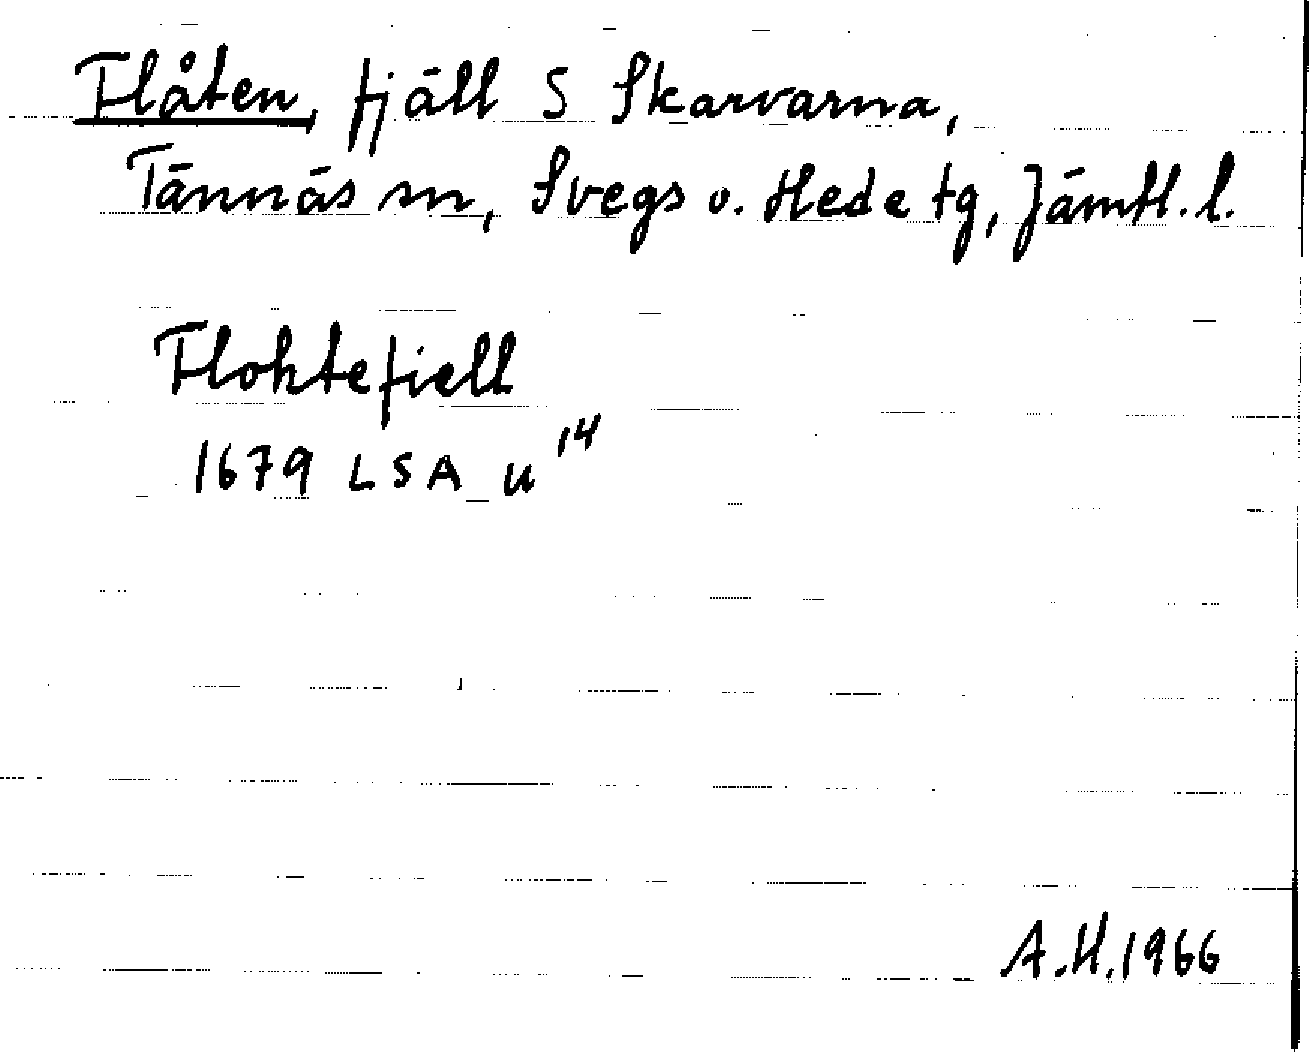 Flåten, fjäll S Skarvarna,
Tännäs sn, Svegs o. Hede tg, Jämtl. l.
Flohtefiell
1679 LSA U¹⁴
A.H. 1966